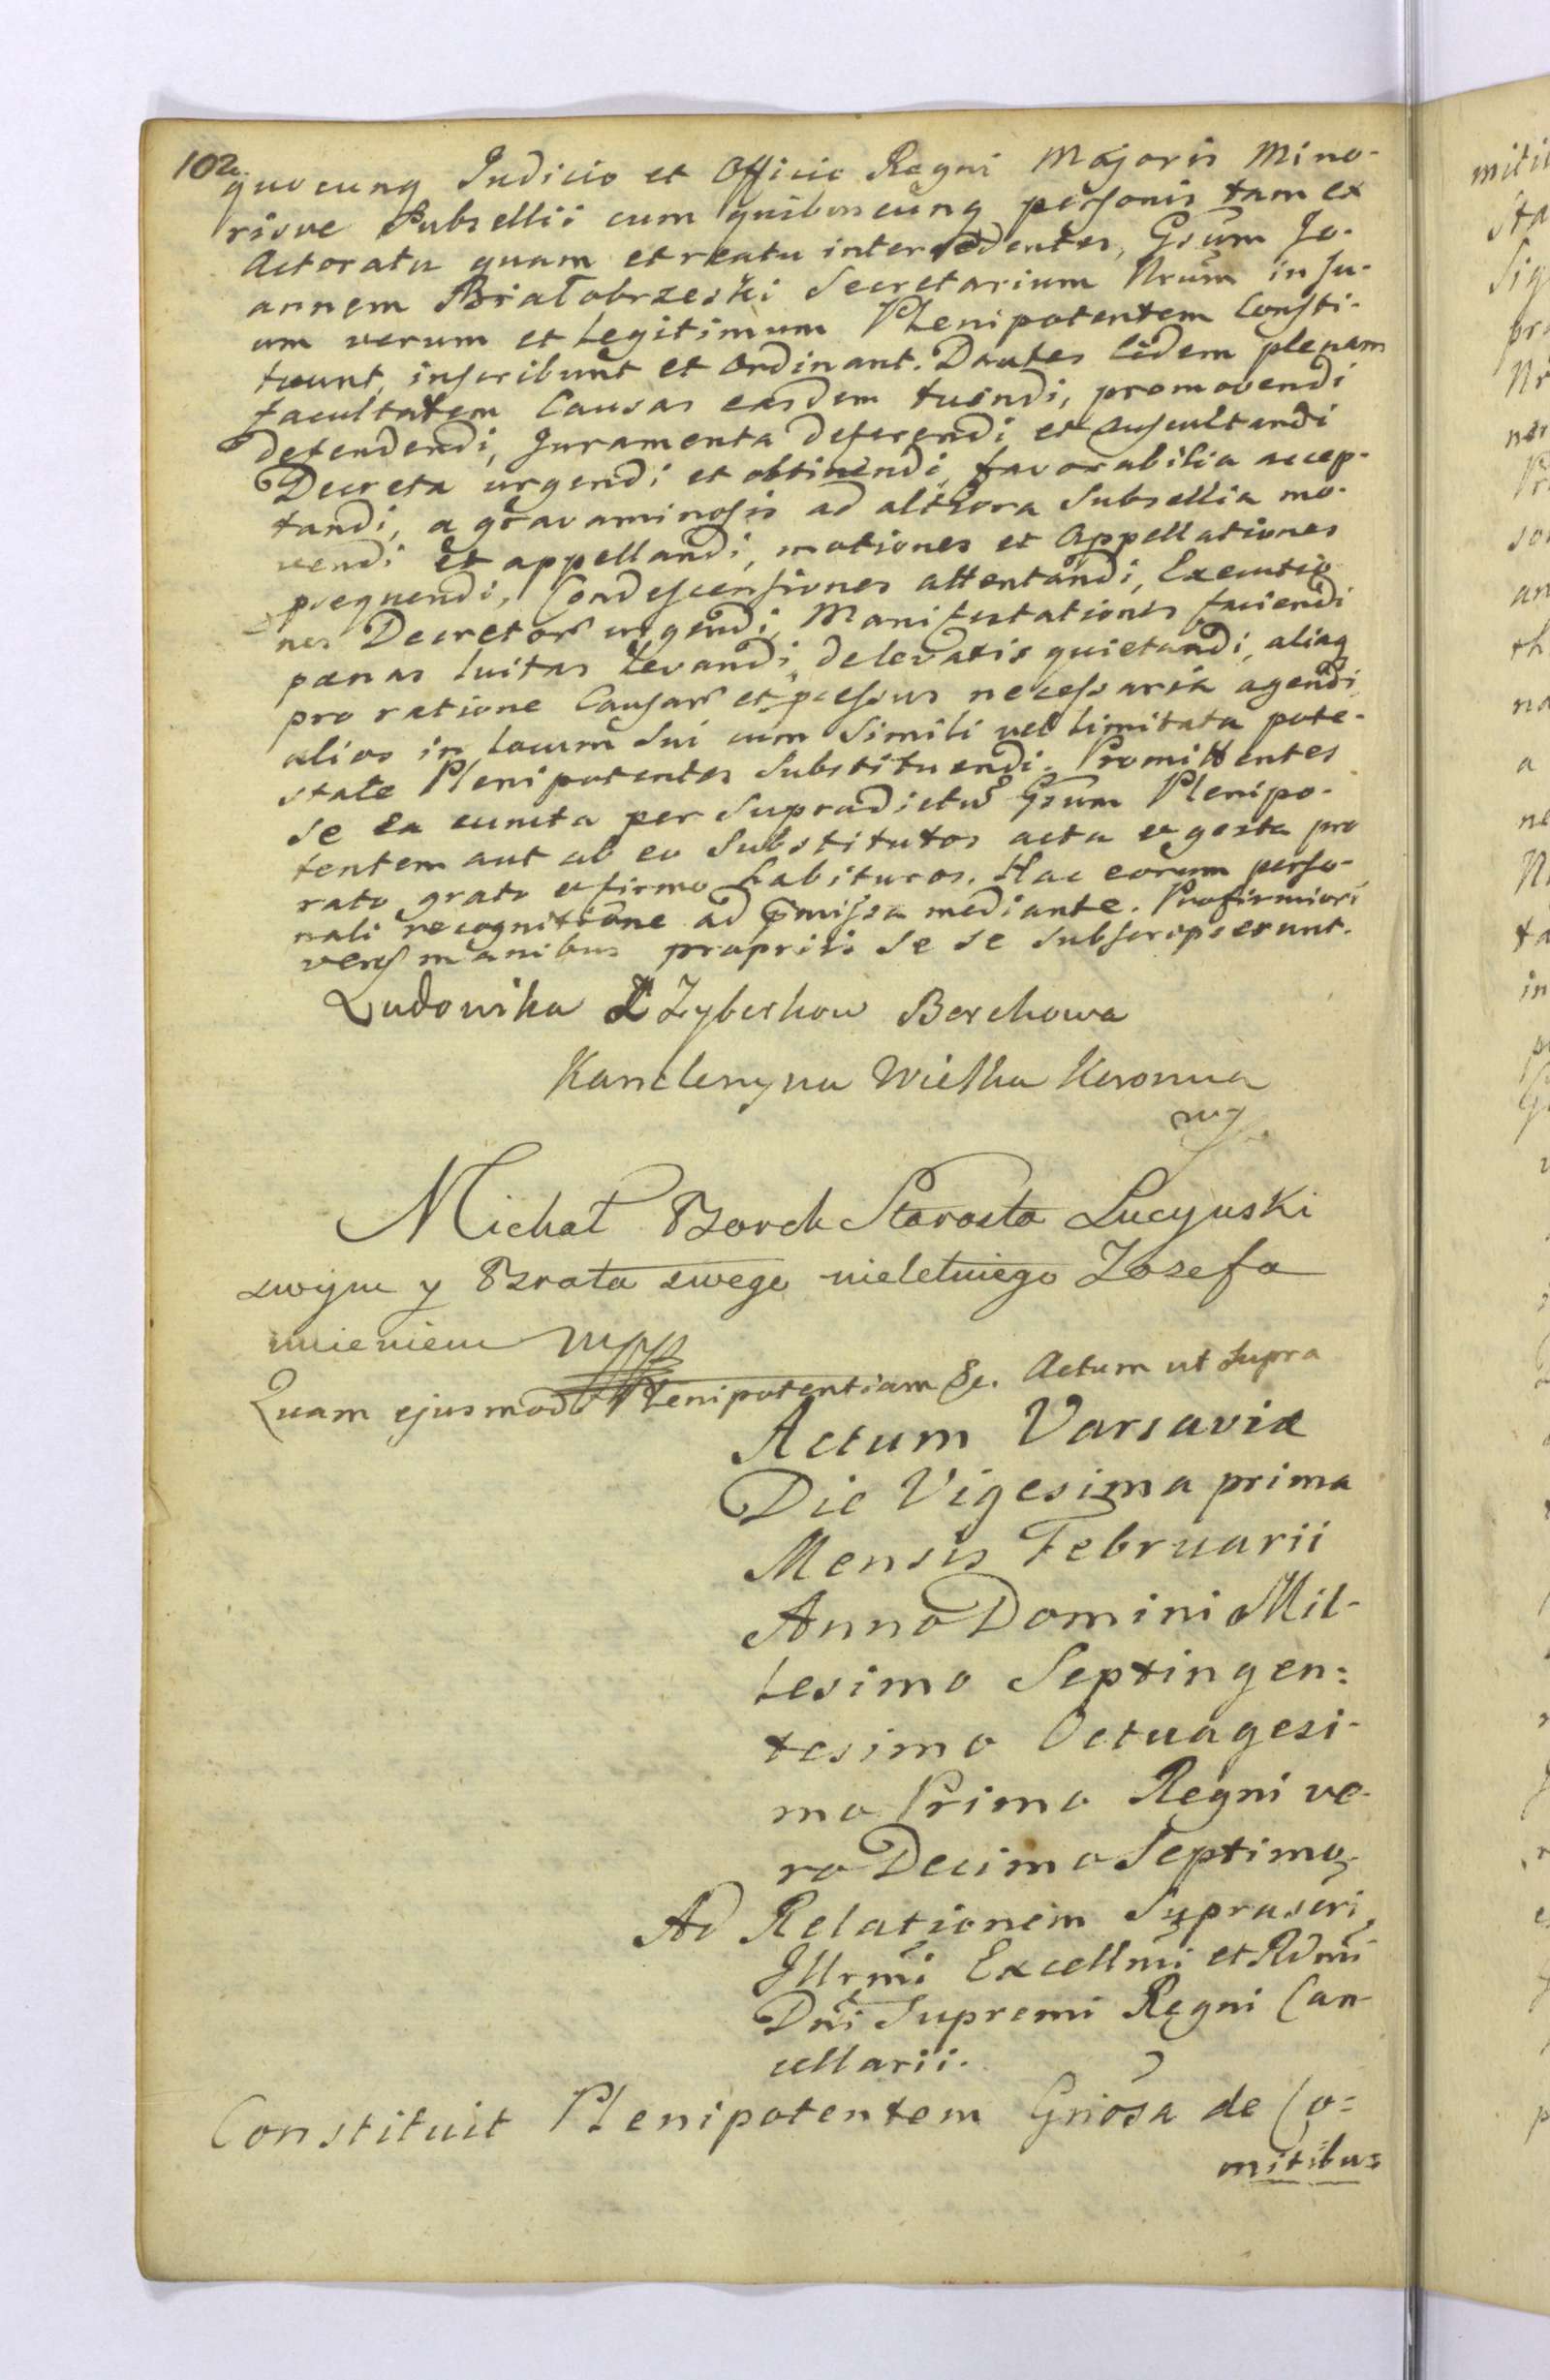 102.
quocunq Judicio et Officio Regni Majoris Mino-
risve Subsellii cum quibuscunq personis tam ex
Actoratu quam et reatu intercedentes, Gsum Jo-
annem Białobrzeski Secretarium Nrum in su-
um verum et Legitimum Plenipotentem Consti-
tuunt, inscribunt et Ordinant. Dantes Eidem plenam
facultatem Causas easdem tuendi, promovendi
defendendi, Juramenta deferendi et auscultandi
Decreta urgendi et obtinendi, favorabilia accep-
tandi, a gravaminosis ad altiora Subsellia mo-
vendi et appellandi, motiones et Appellationes
psequendi, Condescensiones attentandi, Executio-
nes Decretor urgendi, Manifestationes faciendi
pœnas luitas levandi, de levatis quietandi, aliaq
pro ratione Causar et pcessus necessaria agendi
alios in locum Sui cum Simili vel limitata pote-
state Plenipotentes Substituendi. Promittentes
Se ea cuncta per Supradictu Gsum Plenipo-
tentem aut ab eo Substitutos acta et gesta pro
rato grato et firmo habituros. Hac eorum perso-
nali recognitione ad pmissa mediante. Pro firmiori
vero manibus propriis se se subscripserunt.
Ludowika Z Zyberkow Borchowa
Kanclerzyna Wielka Koronna
mp.
Michał Borch Starosta Lucynski
swoym y Brata swego nieletniego Jozefa
imieniem mpp
Quam ejusmodi Plenipotentiam &c. Actum ut Supra
Actum Varsaviæ
Die Vigesima prima
Mensis Februarii
Anno Domini Mil-
lesimo Septingen:
tesimo Octuagesi-
mo Primo Regni ve-
ro Decimo Septimo.
Ad Relationem Suprascri
Illrmi Excellmi et Rdmi
Dni Supremi Regni Can-
cellarii.
Constituit Plenipotentem Gnosa de Co=
mitibus